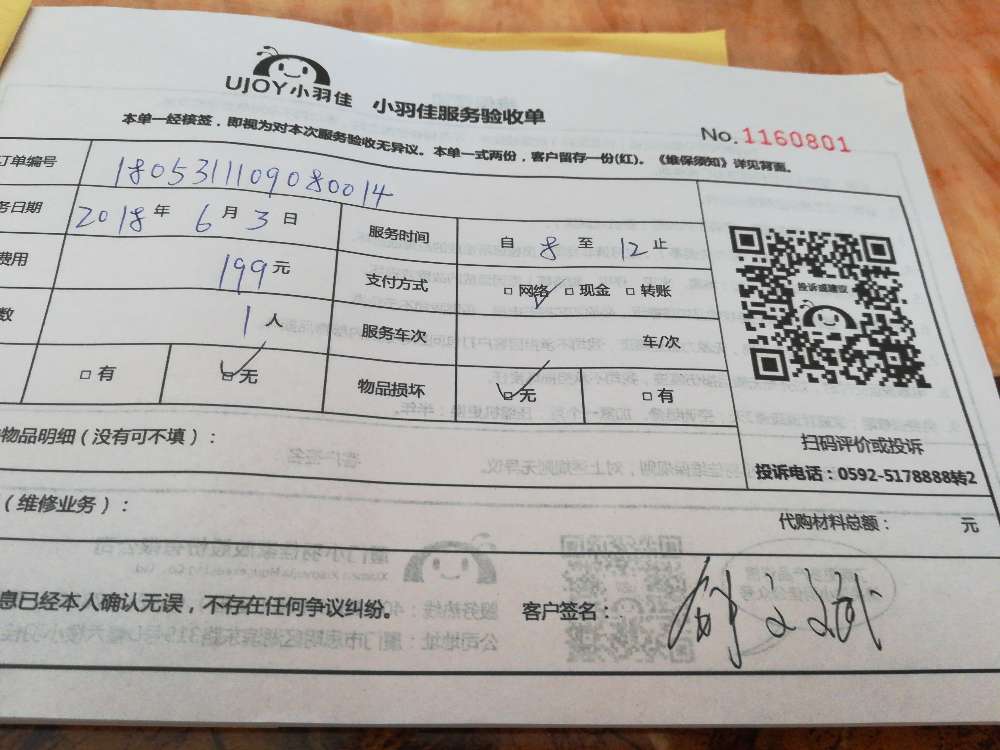 UJOY小羽佳 小羽佳服务验收单
本单一经核签，即视为对本次服务验收无异议。本单一式两份，客户留存一份(红)。《维保须知》详见背面。
No.1160801
订单编号 1805311109080014
务日期 2018年6月3日 服务时间 自8至12止
费用 199元 支付方式 □网络 □现金 □转账
数 1人 服务车次 车/次
□有 □无 物品损坏 □无 □有
投诉或建议
扫码评价或投诉
投诉电话：0592-5178888转2
物品明细（没有可不填）：
（维修业务）： 代购材料总额： 元
息已经本人确认无误，不存在任何争议纠纷。 客户签名：